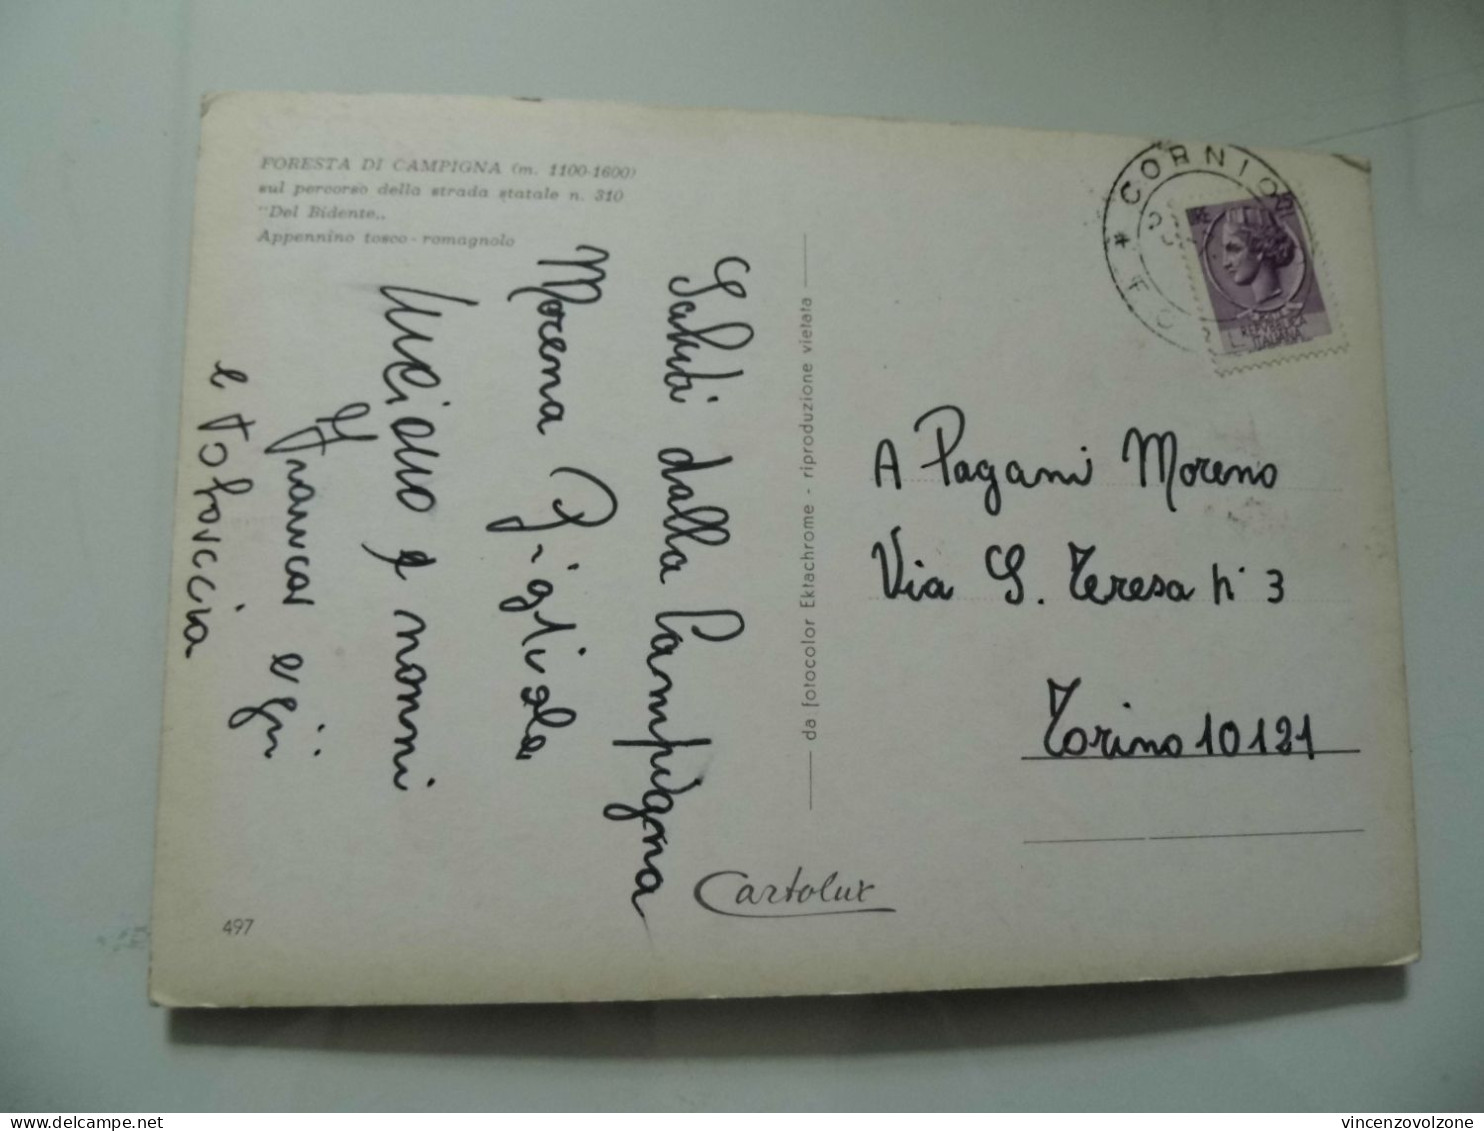 FORESTA DI CAMPIGNA (m. 1100-1600)
sul percorso della strada statale n. 310
"Del Bidente„
Appennino tosco-romagnolo
Saluti dalla Campigna
Morena
Luciano e nonni
Franca
e
da fotocolor Ektachrome - riproduzione vietata
CORNIO
REPVBBLICA
ITALIANA
A Pagani Moreno
Via S. Teresa n° 3
Torino 10121
Cartolux
497
vincenzovolzone